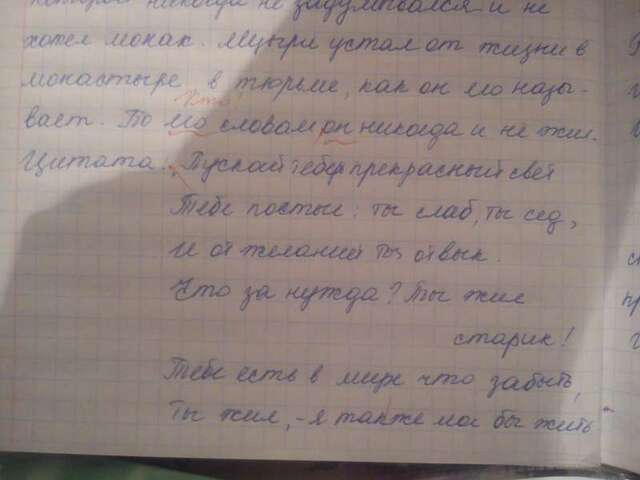 никогда не задумывался и не
хотел монах. Мцыри устал от жизни в
монастыре, в тюрьме, как он его назы-
вает. По его словам он никогда и не жил.
Кто?
Цитата. Пускай теперь прекрасный свет
Тебе постыл: ты слаб, ты сед,
И от желаний ты отвык.
Что за нужда? Ты жил
старик!
Тебе есть в мире что забыть,
Ты жил, - я также мог бы жить